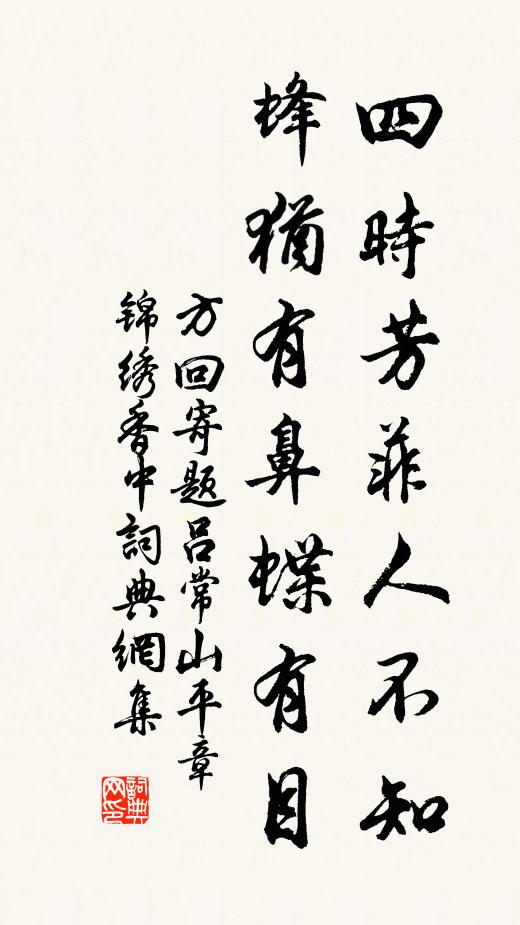 四時芳菲人不知
蜂猶有鼻蝶有目
方回寄题吕常山平章
锦绣香中詞典網集
詞典网印